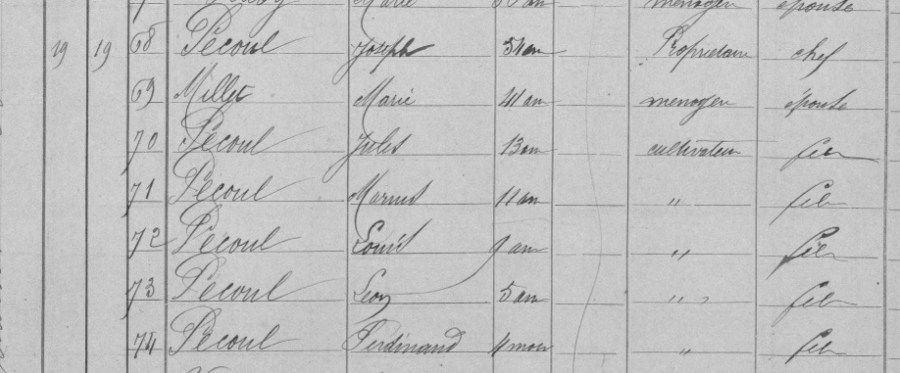 Marie ménagère épouse
19 19 68 Pécoul Joseph 51 an Propriétaire chef
69 Millet Marie 41 an ménagère épouse
70 Pécoul Jules 13 an cultivateur fils
71 Pécoul Marius 11 an " fils
72 Pécoul Louis 9 ans " fils
73 Pécoul Léon 5 an " " fils
74 Pécoul Ferdinand 4 mois " fils